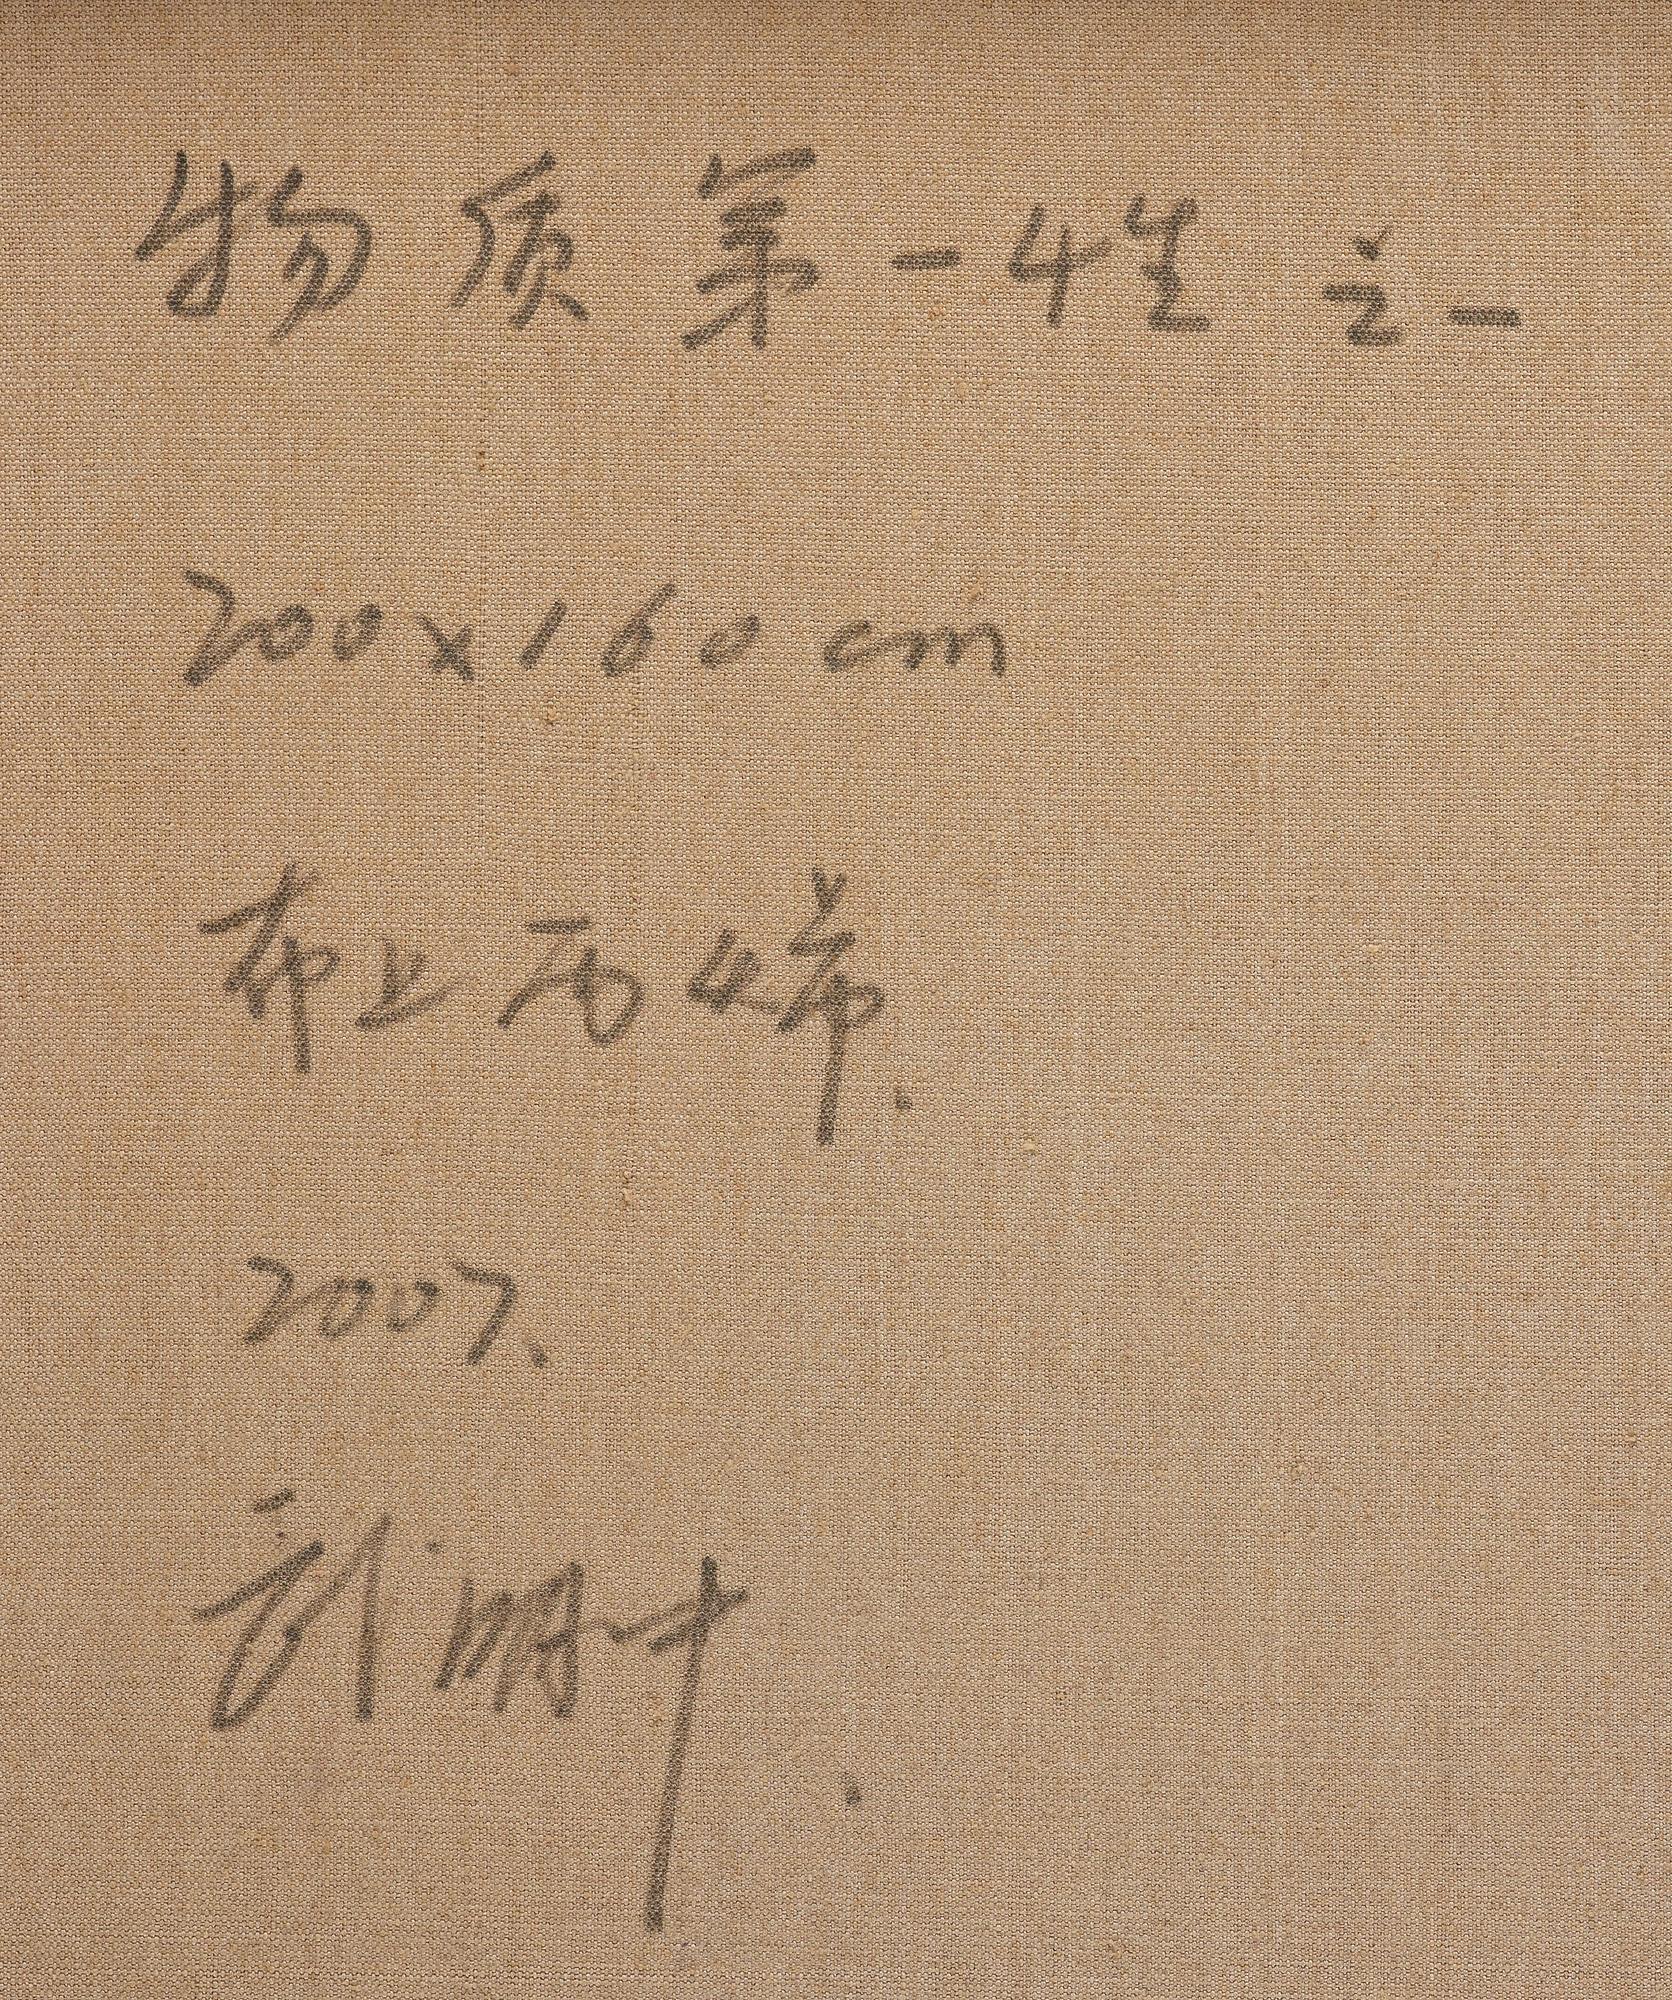 物质第一性 之一
200×160 cm
布上丙烯.
2007、
刘